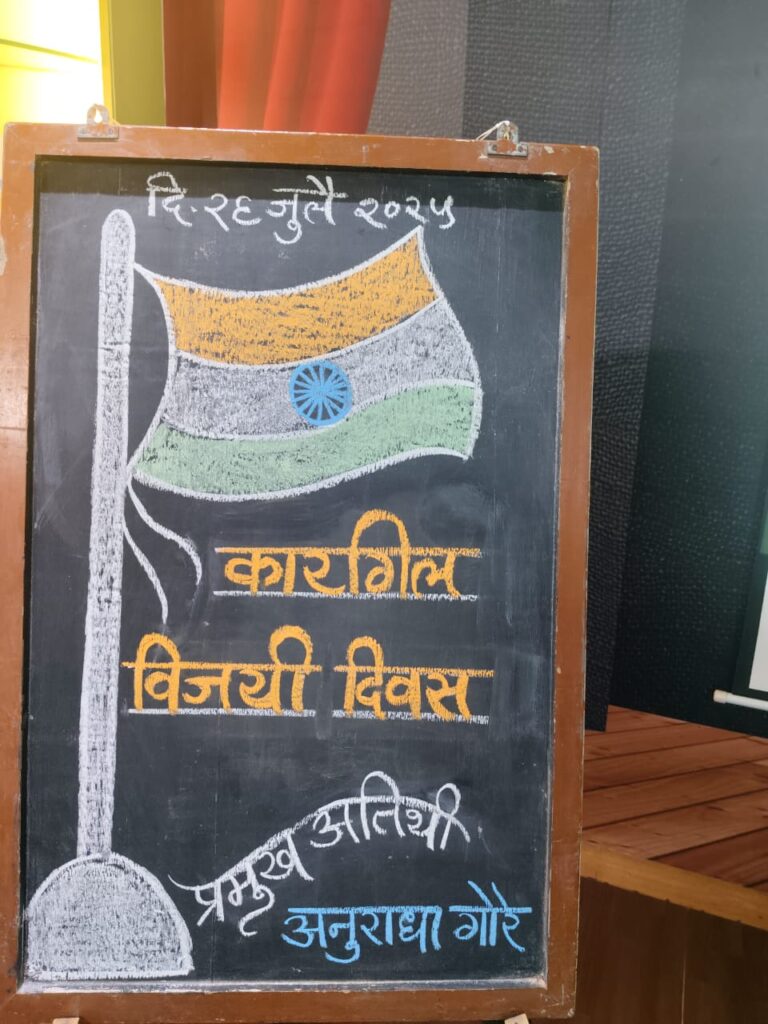 दि.२६ जुलै २०२५
कारगिल
विजयी दिवस
प्रमुख अतिथी
अनुराधा गोरे